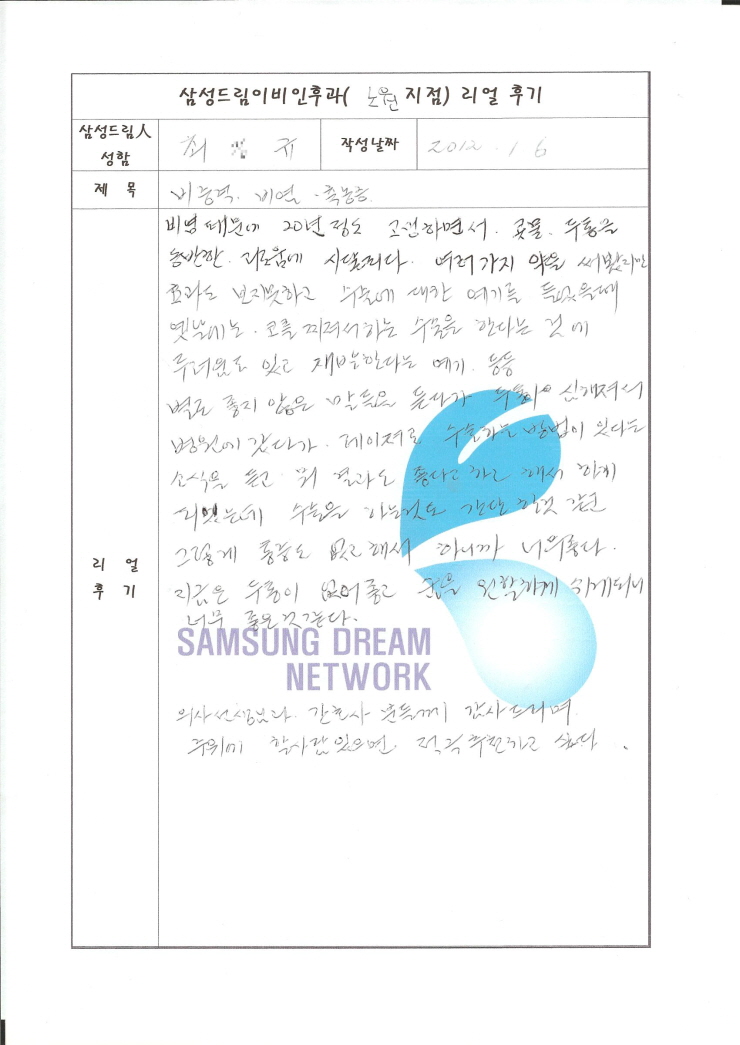 삼성드림이비인후과( 노원 지점) 리얼 후기
삼성드림人 성함
최 규
작성날짜
2012. 1 6
제 목
비중격. 비염. 축농증
리 얼 후 기
비염 때문에 20년 정도 고생하면서. 콧물. 두통을
동반한. 괴로움에 시달렸다. 여러가지 약을 써봤지만
효과도 보지못하고 수술에 대한 얘기를 들었을때
옛날에는. 코를 찌져서하는 수술을 한다는 것에
두려움도 있고 재발한다는 얘기. 등등
별로 좋지 않은 말들을 듣다가 두통이 심해져서
병원에 갔다가. 레이져로 수술하는 방법이 있다는
소식을 듣고 뭐 결과도 좋다고 하고 해서 하게
되었는데 수술을 하는것도 간단한것 같고
그렇게 통증도 없고해서 하니까 너무좋다.
지금은 두통이 없어좋고 숨을 원활하게 쉬게되니
너무 좋은것같다.
SAMSUNG DREAM
NETWORK
의사선생님과. 간호사 분들께 감사드리며
주위에 할사람있으면. 적극추천하고 싶다.